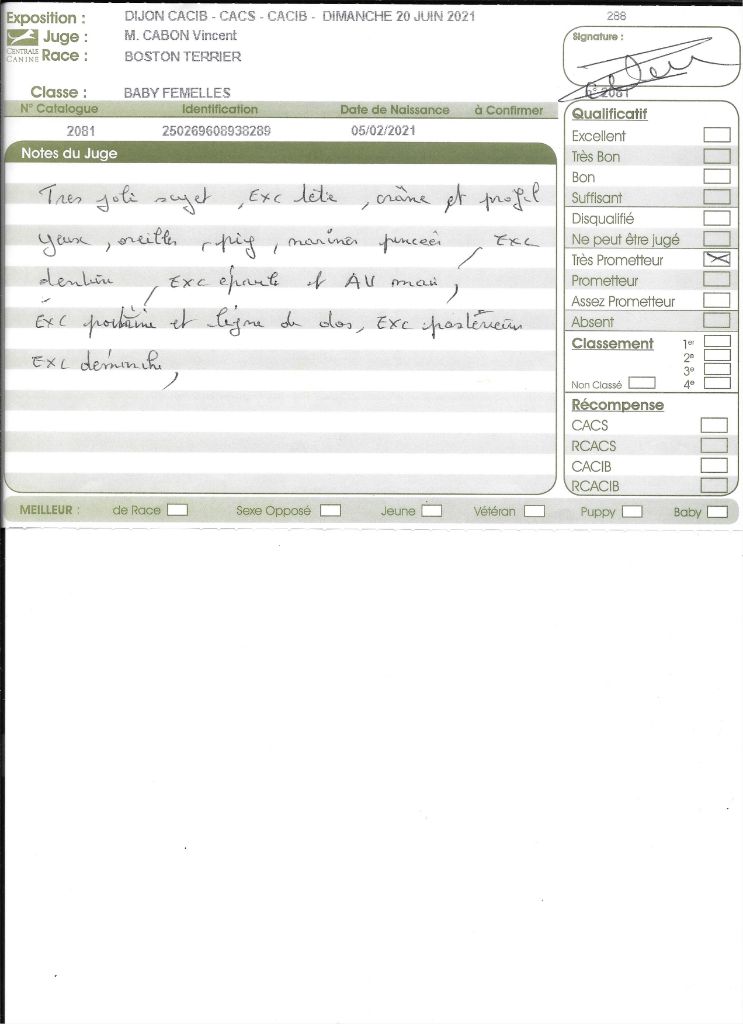 Exposition : DIJON CACIB - CACS - CACIB - DIMANCHE 20 JUIN 2021
288
Juge : M. CABON Vincent
CENTRALE CANINE
Race : BOSTON TERRIER
Signature :
n° 2081
Classe : BABY FEMELLES
N° Catalogue Identification Date de Naissance à Confirmer
2081 250269608938289 05/02/2021
Notes du Juge
Tres joli sujet, Exc tête, crâne et profil
yeux, oreilles, pig, narines pincées, Exc
denture, Exc épaule et AV main,
Exc poitrine et ligne de dos, Exc postérieurs
Exc démarche,
Qualificatif
Excellent
Très Bon
Bon
Suffisant
Disqualifié
Ne peut être jugé
Très Prometteur
Prometteur
Assez Prometteur
Absent
Classement 1er
2e
3e
Non Classé 4e
Récompense
CACS
RCACS
CACIB
RCACIB
MEILLEUR : de Race Sexe Opposé Jeune Vétéran Puppy Baby